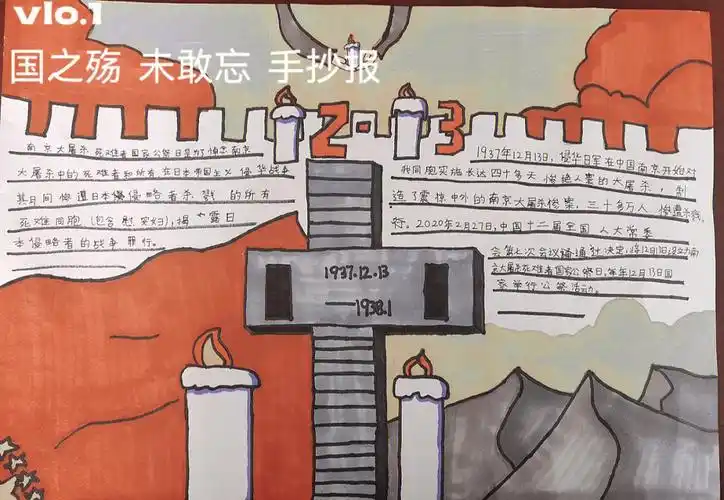 vlo.1
国之殇 未敢忘 手抄报
12·13
南京大屠杀死难者国家公祭日是为了悼念南京
大屠杀中的死难者和所有在日本帝国主义侵华战争
其月间惨遭日本侵略者杀戮的所有
死难同胞(包含慰安妇),揭露日
本侵略者的战争罪行。
1937年12月13日,侵华日军在中国南京开始对
我同胞实施长达四十多天惨绝人寰的大屠杀,制
造了震惊中外的南京大屠杀惨案,三十多万人惨遭杀戮
2020年2月27日,中国十二届全国人大常委
会第七次会议通过决定,将12月13日设立为南
京大屠杀死难者国家公祭日,每年12月13日国
家举行公祭活动。
1937.12.13
—1938.1